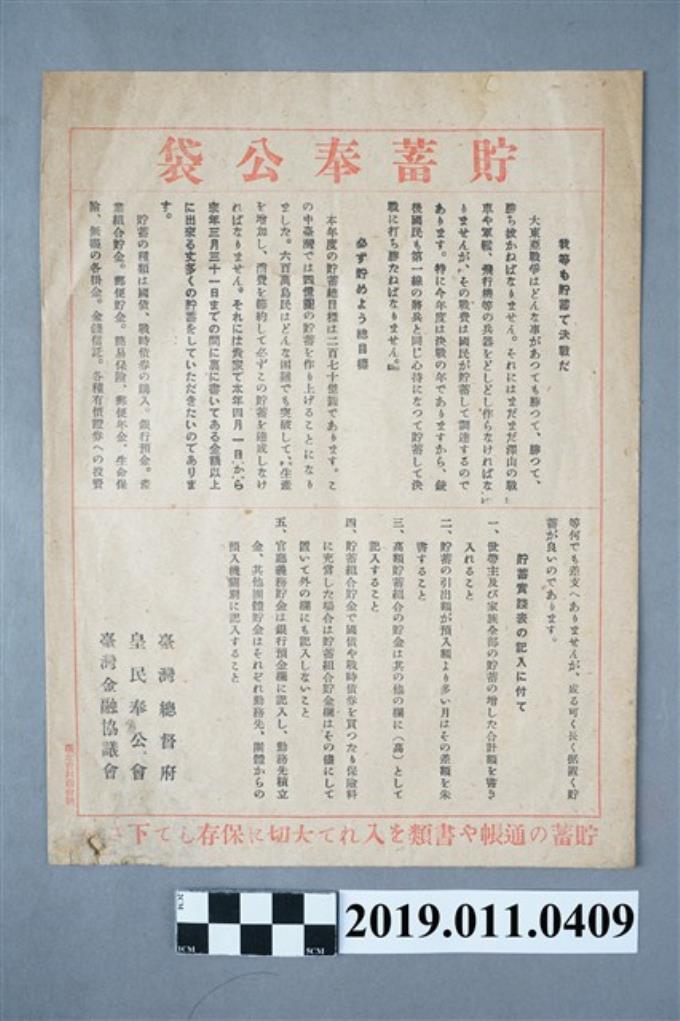 貯蓄奉公袋
我等も貯蓄で決戰だ
大東亞戰爭はどんな事があつても勝つて、勝つて、
勝ち拔かねばなりません。それにはまだまだ澤山の戰
車や軍艦、飛行機等の兵器をどしどし作らなければな
りませんが、その戰費は國民が貯蓄して調達するので
あります。特に今年度は決戰の年でありますから、銃
後國民も第一線の將兵と同じ心持になつて貯蓄して決
戰に打ち勝たねばなりません。
必ず貯めよう總目標
本年度の貯蓄總目標は二百七十億圓であります。こ
の中臺灣では四億圓の貯蓄を作り上げることになり
ました。六百萬島民はどんな困難でも突破して、生產
を增加し、消費を節約して必ずこの貯蓄を達成しなけ
ればなりません。それには貴家で本年四月一日から
來年三月三十一日までの間に裏に書いてある金額以上
に出來る丈多くの貯蓄をしていただきたいのでありま
す。
貯蓄の種類は國債、戰時債券の購入。銀行預金。產
業組合貯金。郵便貯金。簡易保險、郵便年金、生命保
險、無盡の各掛金。金錢信託。各種有價證券への投資
等何でも差支へありませんが、成る可く長く据置く貯
蓄が良いのであります。
貯蓄實踐表の記入に付て
一、世帶主及び家族全部の貯蓄の增した合計額を書き
入れること
二、貯蓄の引出額が預入額より多い月はその差額を朱
書すること
三、高額貯蓄組合の貯金は其の他の欄に(高)として
記入すること
四、貯蓄組合貯金で國債や戰時債券を買つたり保險料
に充當した場合は貯蓄組合貯金欄はその儘にして
置いて外の欄にも記入しないこと
五、官廳義務貯金は銀行預金欄に記入し、勤務先積立
金、其他團體貯金はそれぞれ勤務先、團體からの
預入機關別に記入すること
臺灣總督府
皇民奉公會
臺灣金融協議會
貯蓄の通帳や書類を入れて大切に保存して下さ
2019.011.0409
1CM
1CM
5CM